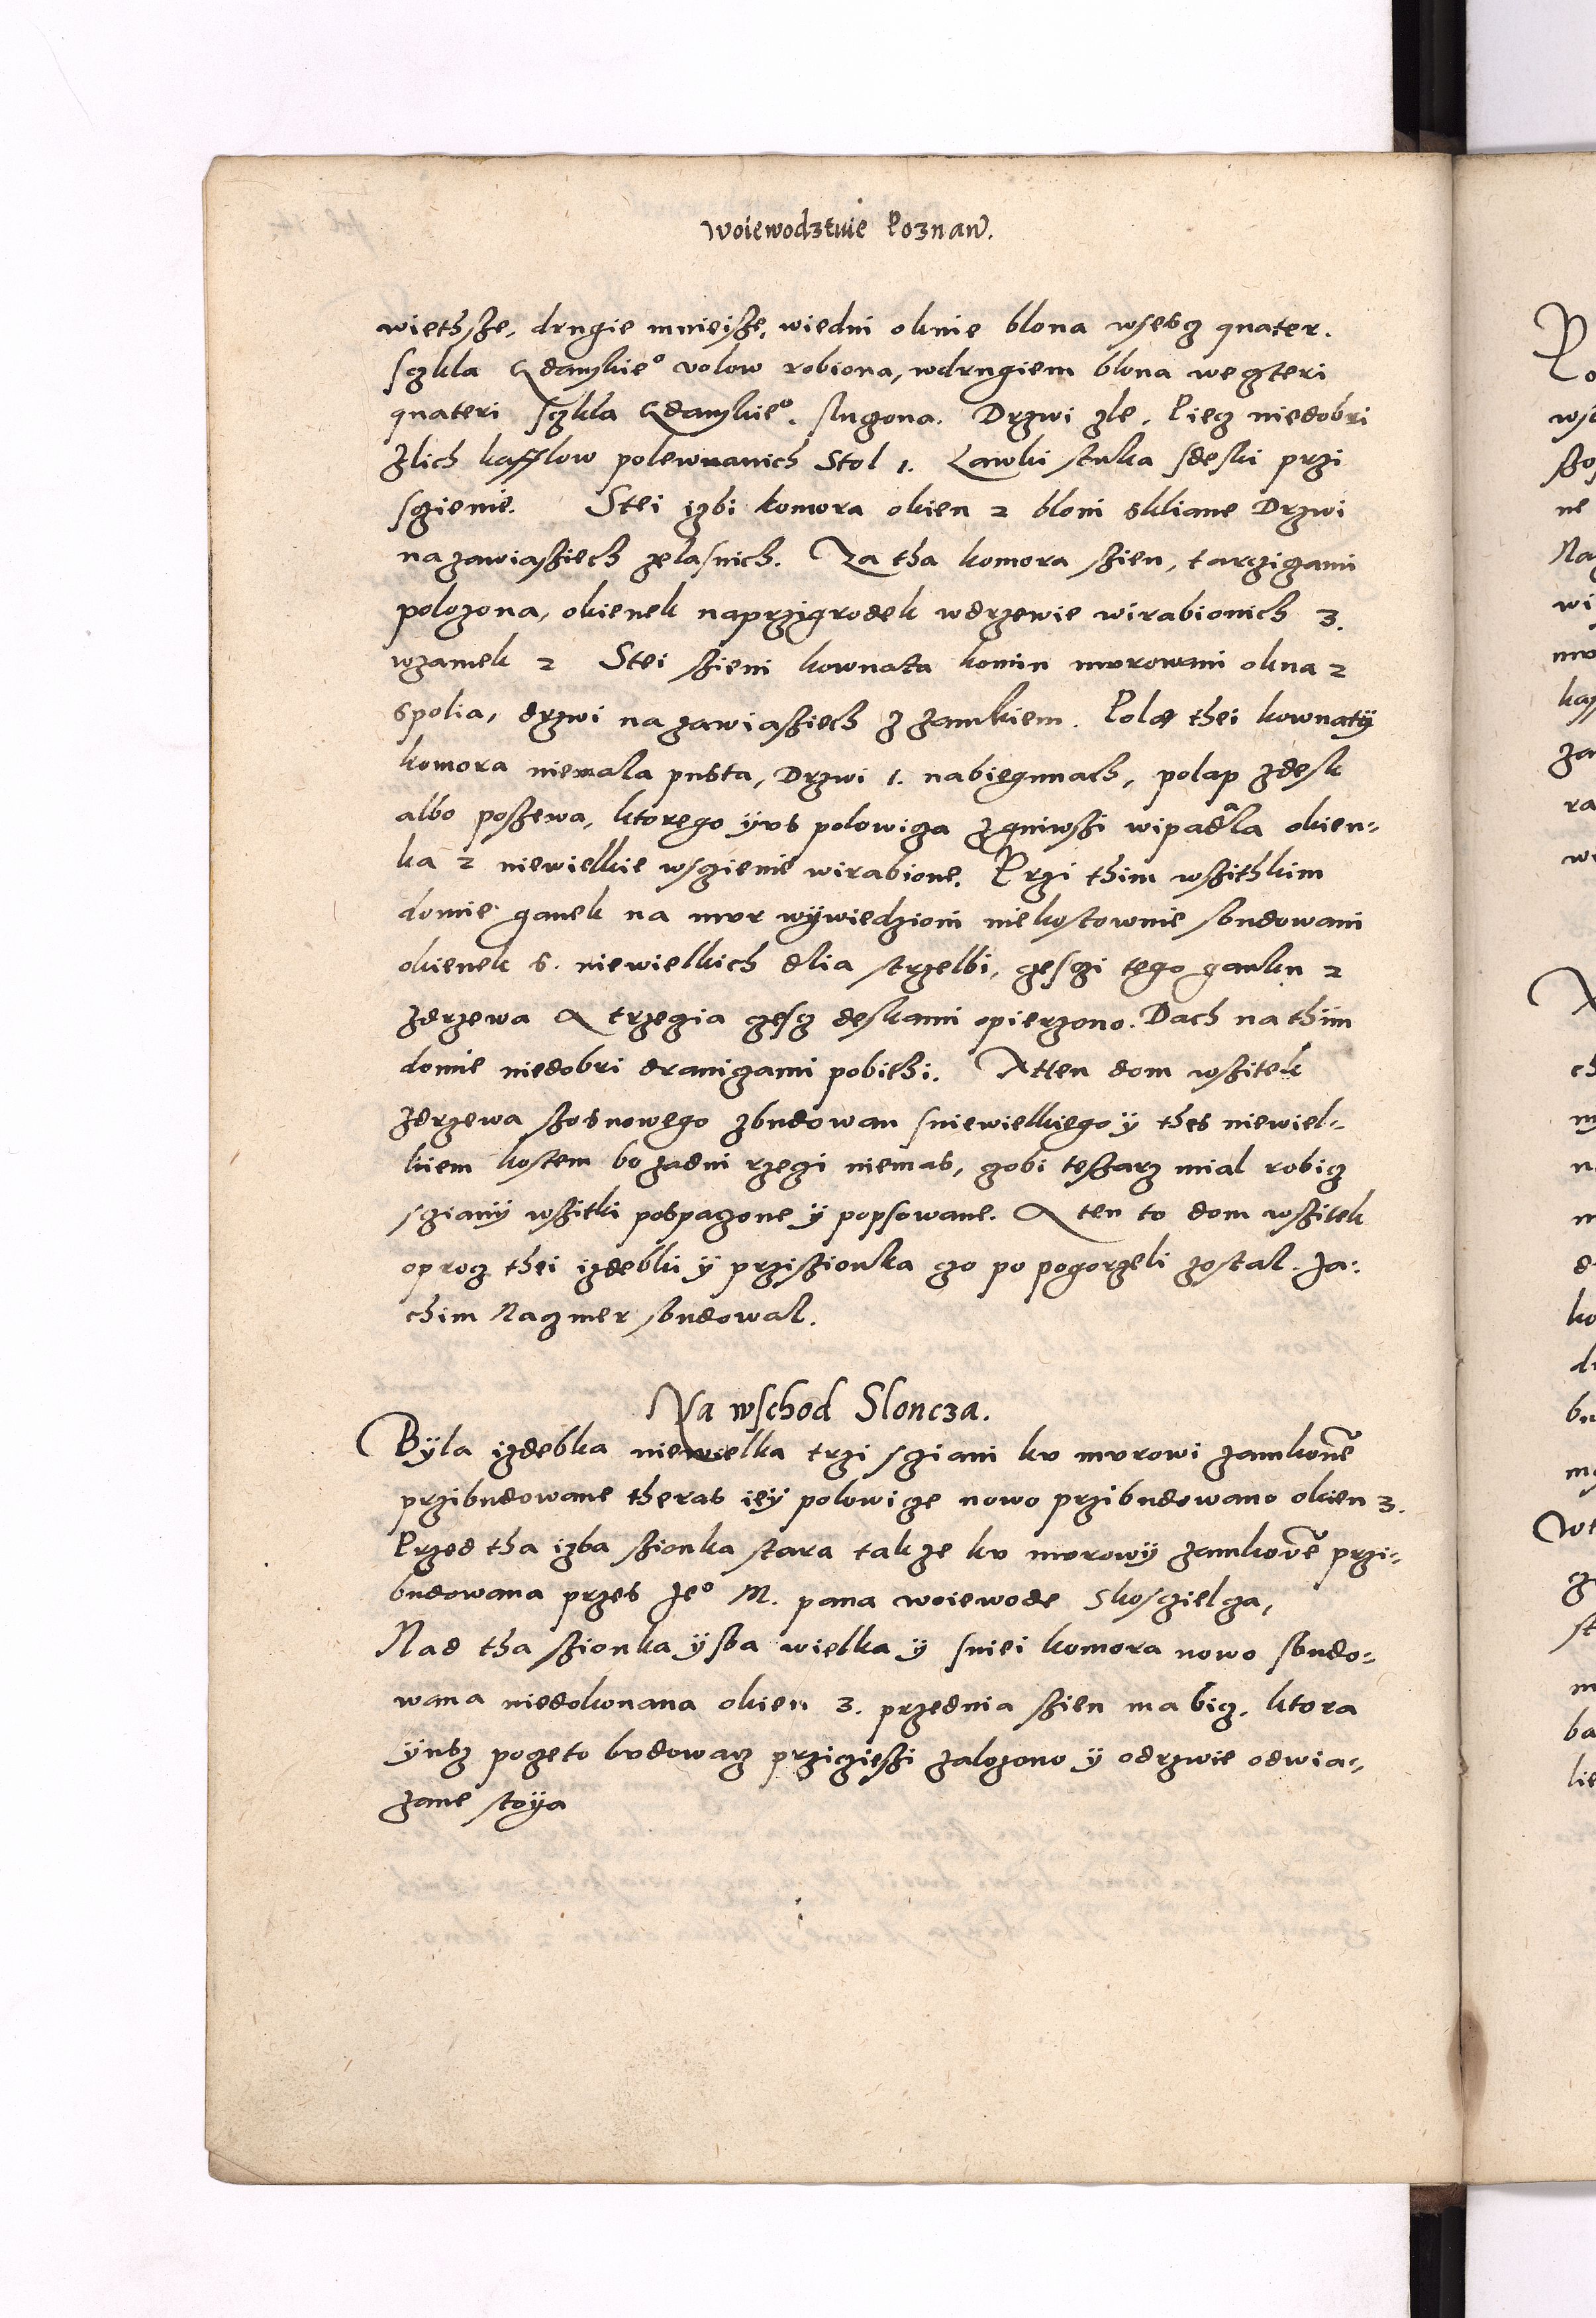 Woiewodztwie Poznan̄.
wiethsze, drugie mnieisze, wiedni oknie blona wsescz quater.
sczkla Gdanskie° volow robiona, wdrugiem blona weczteri
quateri sczkla Gdanskie°. sluczona. Drzwi zle, Piecz niedobri
zlich kafflow polewanich Stol 1. Lawki stuka sdeski przi
sczienie. Stei izbi komora okien 2 bloni skliane Drzwi
nazawiasziech zelasnich. Za tha komora szien, tarczigami
polozona, okienek naprzigrodek wdrzewie wirabionich 3.
wzamek 2 Stei szieni kownata komin murowani okna 2
spolia, drzwi na zawiasziech z zamkiem. Pole thei kownatÿ
komora niemala pusta, Drzwi 1. nabiegunach, polap zdesk
albo poszewa, ktorego ÿus polowicza zgniwszi wipadla okien-
ka 2 niewielkie wsczienie wirabione. Przi thim wszithkim
domie ganek na mur wÿwiedzioni niekostownie sbudowani
okienek 6. niewielkich dlia strzelbi, czesczi tego ganku 2
zdrzewa A trzecia czesc deskami opierzono. Dach na thim
domie niedobri dranicami pobithi. Atten dom wszitek
zdrzewa szosnowego zbudowan sniewielkiego y thes niewiel-
kiem kostem bo zadni rzeczi niemas, czobi teszarz mial robicz
sczianÿ wszitki pospaczone ÿ popsowane. A ten to dom wszitek
oprocz thei izdebki ÿ przisionka czo po pogorzeli zostal. Ja-
chim Naczmer sbudowal.
Na wschod Sloncza.
Bÿla izdebka niewielka trzi scziani ku murowi zamkouē
przibudowane theras ieÿ polowicze nowo przibudowano okien 3.
Przed tha izba szionka stara takze ku murowÿ zamkouē przi-
budowana przes Je° M. pana woiewode Skosczielcza,
Nad tha szionka ÿsba wielka ÿ sniei komora nowo sbudo-
wana niedokonana okien 3. przednia szien ma bicz, ktora
ÿusz poczeto budowacz przicziesi zalozono ÿ odrzwie odwia-
zane stoÿa